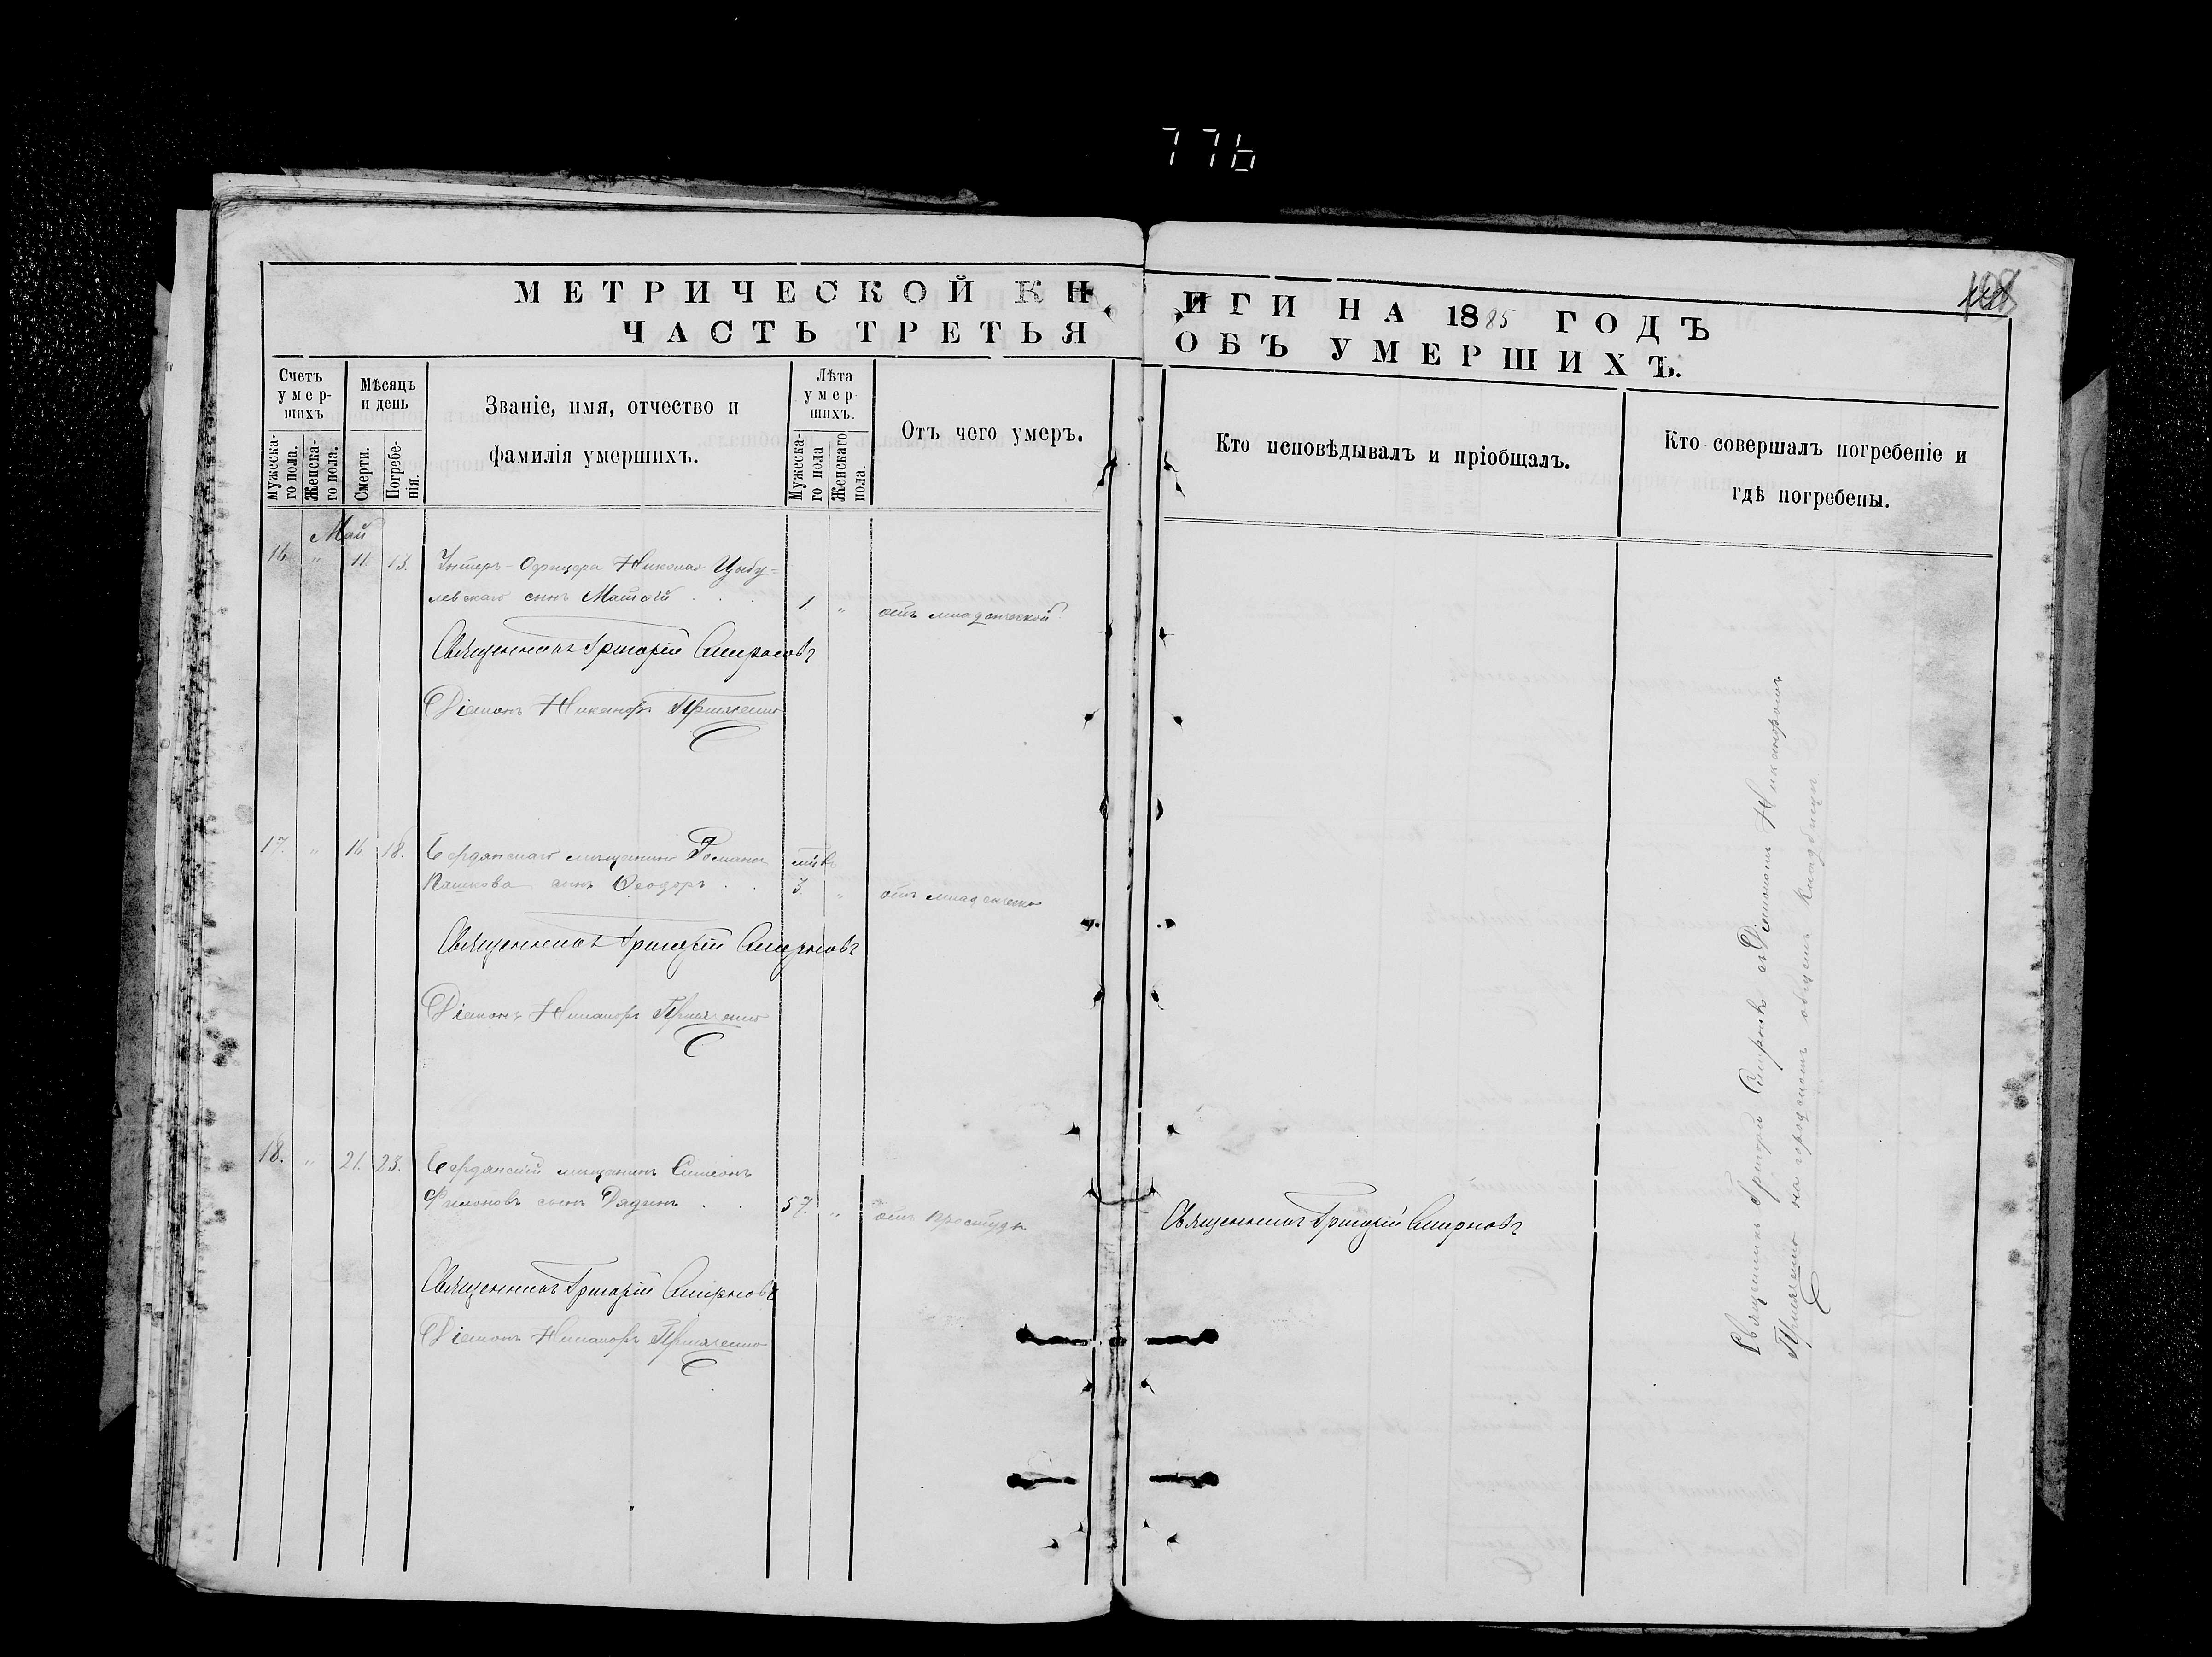 776
МЕТРИЧЕСКОЙ КНИГИ НА 1885 ГОДЪ
ЧАСТЬ ТРЕТЬЯ ОБЪ УМЕРШИХЪ.
Счетъ умер-шихъ
Мѣсяцъ и день
Званіе, имя, отчество и фамилія умершихъ.
Лѣта умер шихъ.
Отъ чего умеръ.
Кто исповѣдывалъ и пріобщалъ.
Кто совершалъ погребеніе и гдѣ погребены.
Мужеска-го пола.
Женска-го пола.
Смерти.
Погребе-нія.
Мужеска-го пола
Женскаго пола.
Май
16 " 11 13. Унтеръ-Офицера Николая Цыбу=
левскаго сынъ Матѳій . . . 1. " отъ младенческой
Священникъ Григорій Смирновъ
Діаконъ Никаноръ
17. " 16 18. Бердянскаго мѣщанина Романа
Пашкова сынъ Ѳеодоръ . . 3. " отъ
Священникъ Григорій Смирновъ
Діаконъ Никаноръ
18. " 21. 23. Бердянскій мѣщанинъ Симеонъ
Филоновъ сынъ . . 57. " отъ простуды
Священникъ Григорій Смирновъ
Священникъ Григорій Смирновъ
Діаконъ Никаноръ
Священникъ Григорій Смирновъ съ Діакономъ Никаноромъ
на городскомъ общемъ кладбищѣ